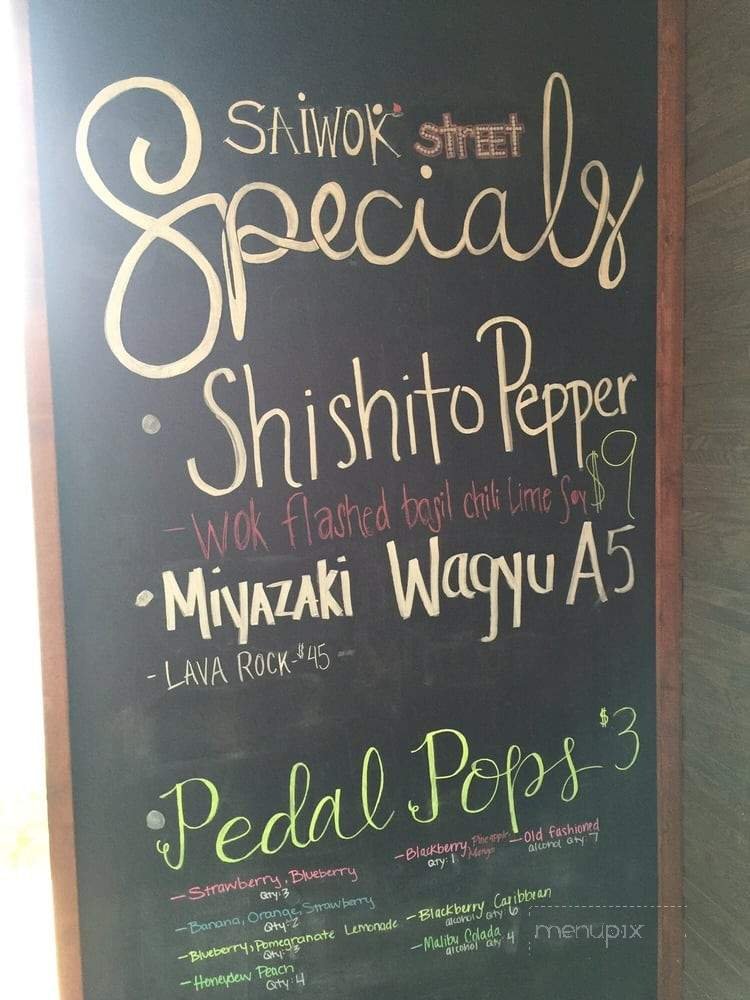 SAIWOK STREET
Specials
Shishito Pepper
- WOK flashed basil chili Lime Soy $9
MIYAZAKI Wagyu A5
- LAVA ROCK - $45 -
Pedal Pops $3
- Strawberry, Blueberry
Qty: 3
- Banana, Orange, Strawberry
Qty: 2
- Blueberry, Pomegranate Lemonade
Qty: 3
- Honeydew Peach
Qty: 4
- Blackberry, Pineapple Mango
Qty: 1
- Old fashioned
alcohol Qty: 7
- Blackberry Caribbean
alcohol Qty 6
- Malibu Colada
alcohol Qty 4
menupix